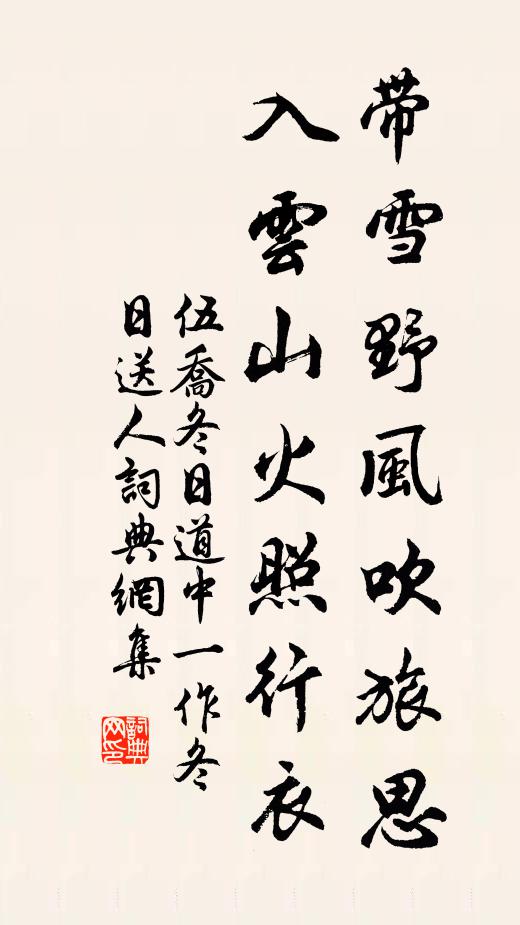 带雪野風吹旅思
入雲山火照行衣
伍喬冬日道中一作冬
日送人詞典網集
詞典
网印